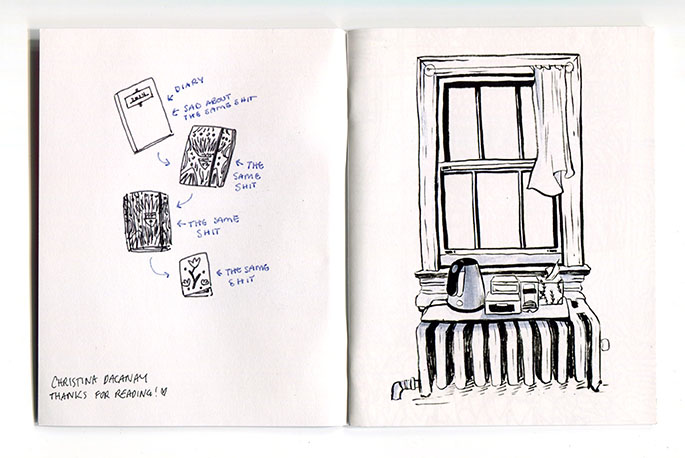 DIARY
SAD ABOUT
THE SAME SHIT
THE
SAME
SHIT
THE SAME
SHIT
THE SAME
SHIT
CHRISTINA DACANAY
THANKS FOR READING!